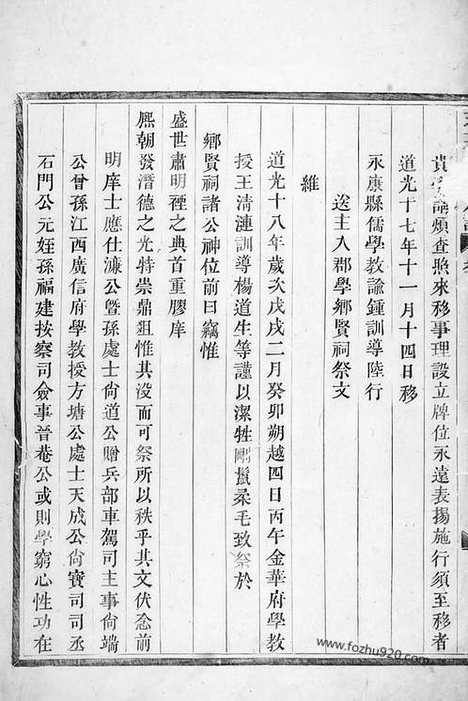 貴學請煩查照來移事理設立牌位永遠表揚施行須至移者
道光十七年十一月十四日移
永康縣儒學教諭鍾訓導陸行
送主入郡學鄉賢祠祭文
維
道光十八年歲次戊戌二月癸卯朔越四日丙午金華府學教
授王清漣訓導楊道生等謹以潔牲剛鬣柔毛致祭於
鄉賢祠諸公神位前曰竊惟
盛世肅明禋之典首重膠庠
熙朝發潛德之光特崇鼎俎惟其沒而可祭所以秩乎其文伏念前
明庠士應仕濂公暨孫處士尙道公贈兵部車駕司主事尙端
公曾孫江西廣信府學教授方塘公處士天成公尙寶司司丞
石門公元姪孫福建按察司僉事晉菴公或則學窮心性功在
www.fozhu920.com